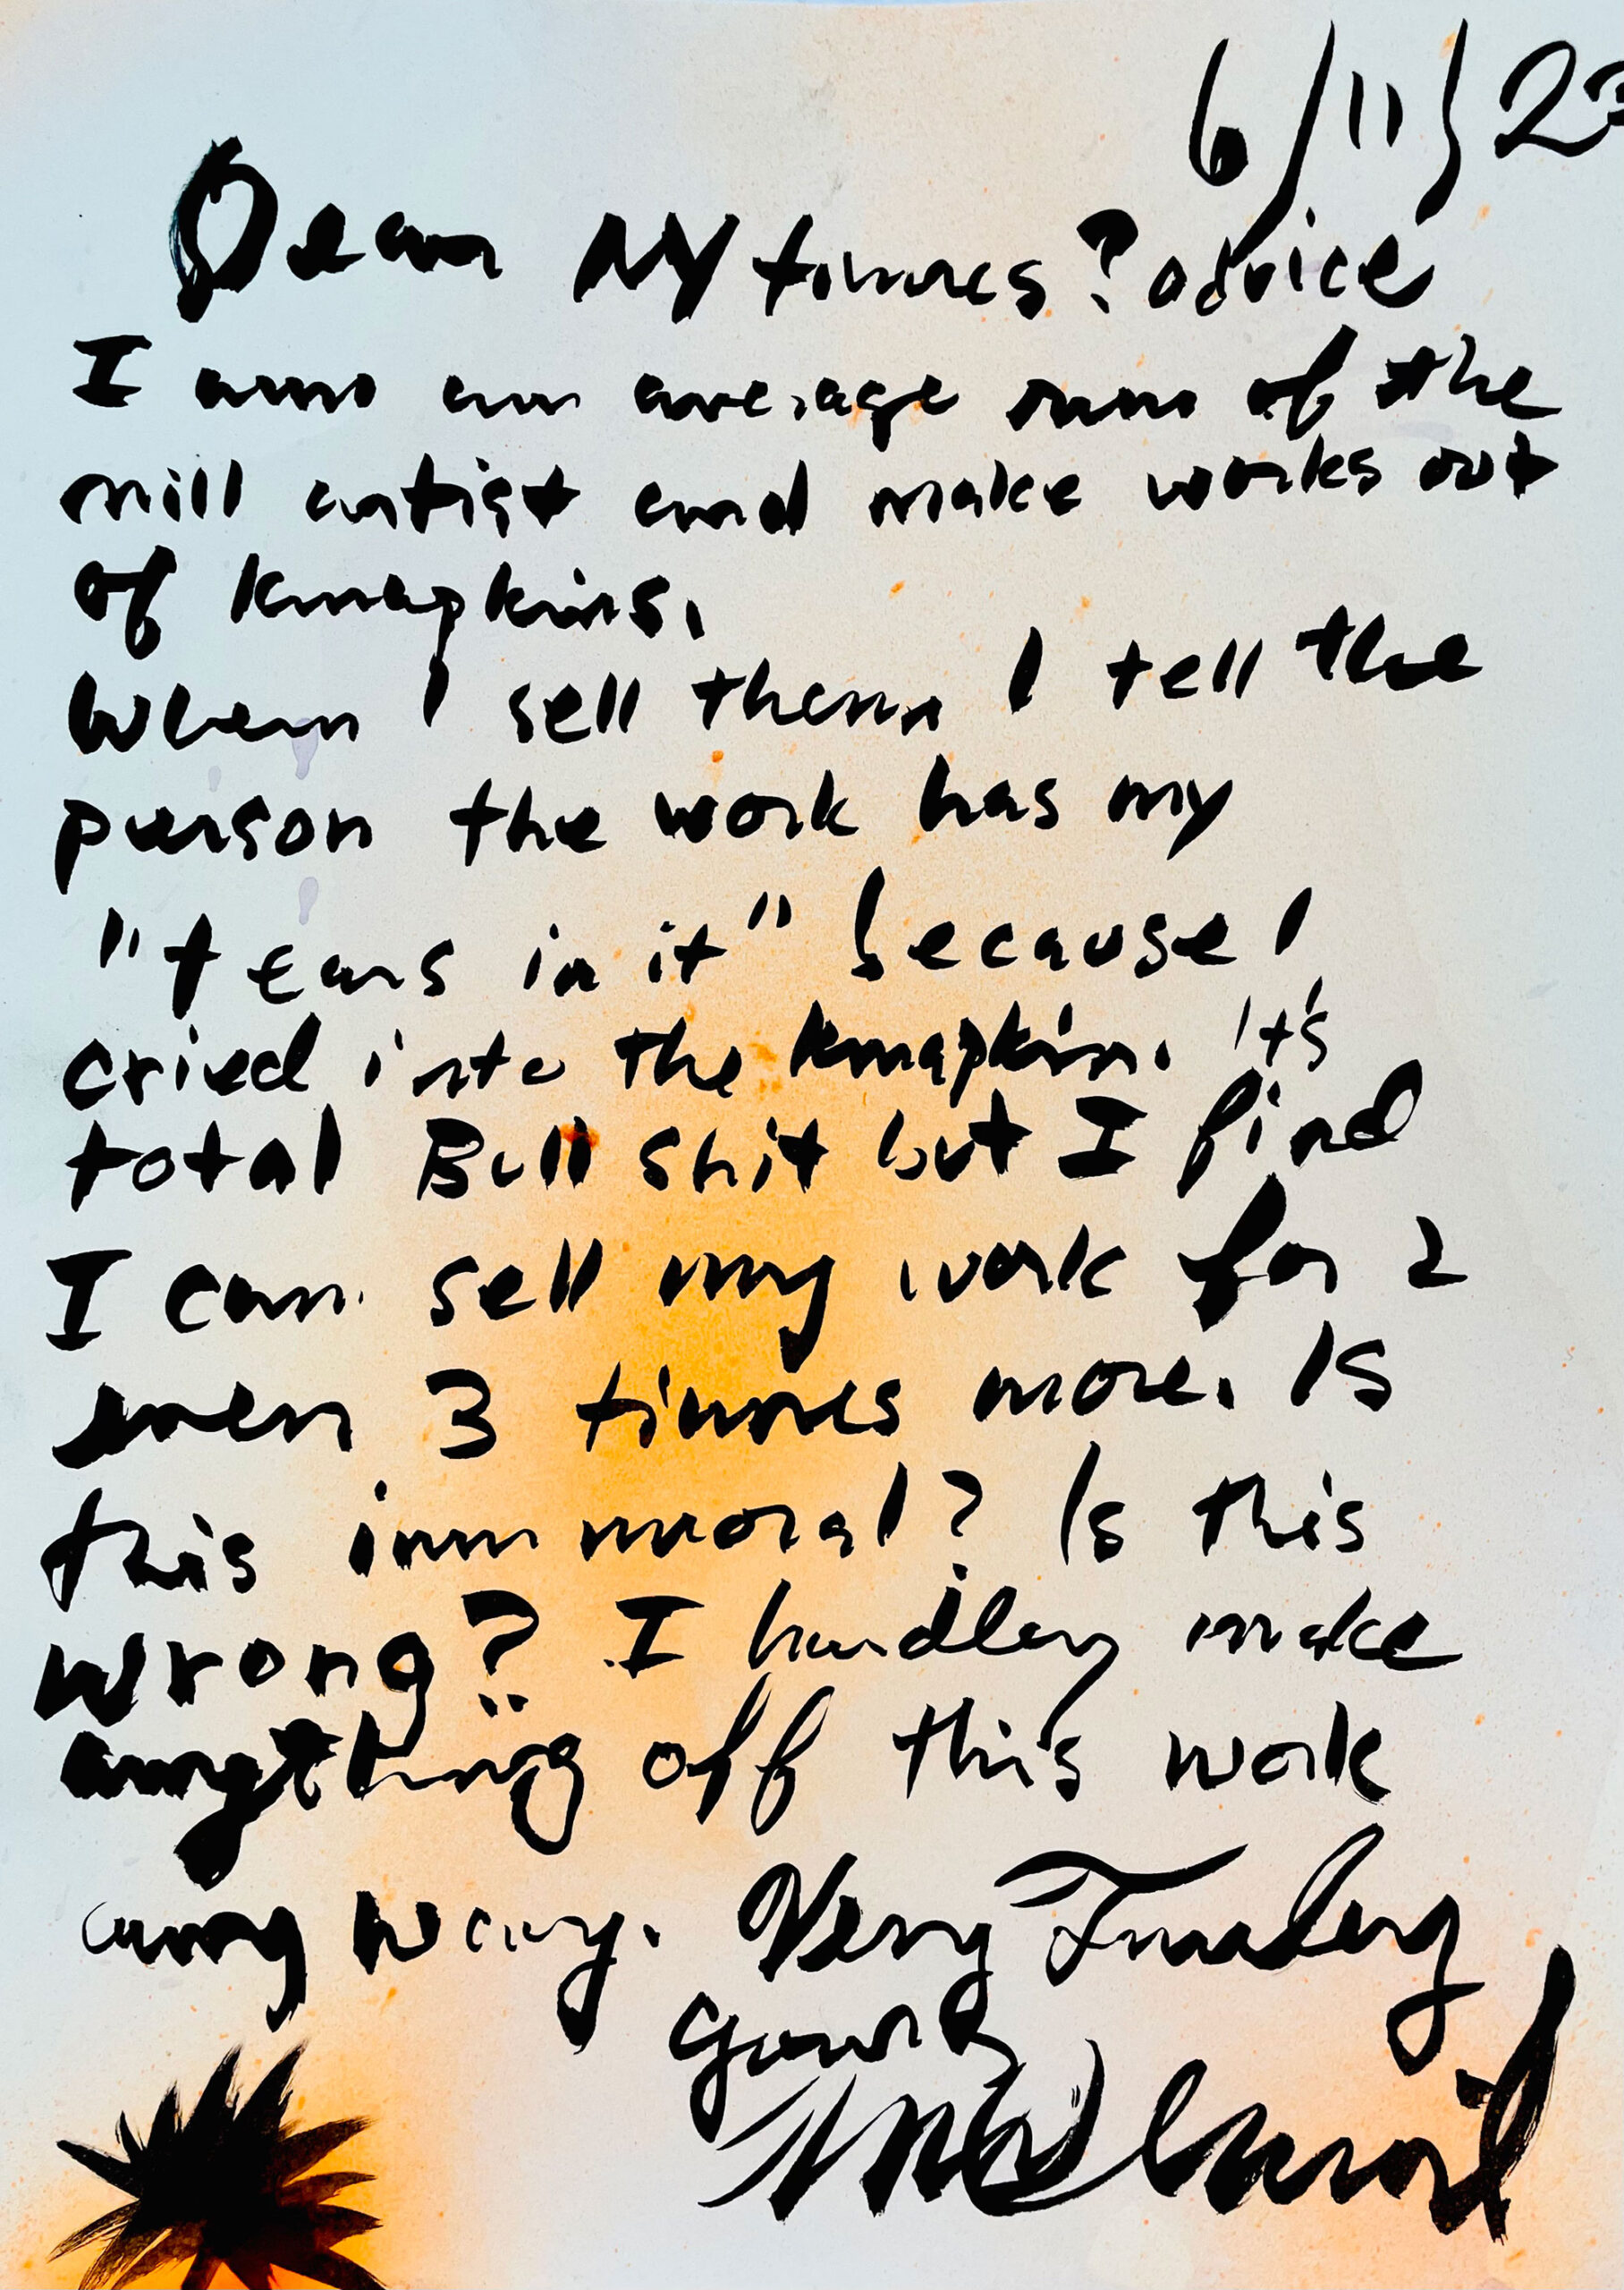 6/11/23
Dear NY times? advice
I am an average run of the
mill artist and make works out
of knapkins.
When I sell them I tell the
person the work has my
"tears in it" because I
cried into the knapkin. It's
total Bull shit but I find
I can sell my work for 2
even 3 times more. Is
this immoral? Is this
wrong? I hardley make
anything off this work
any way. Very Truley
yours